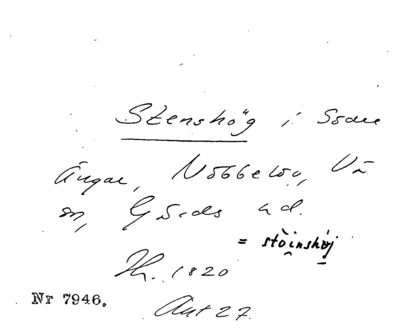 Stenshög i Södra
Ängar, Nöbbelöv, Vä
sn, Gärds hd.
= stöinshöj
Th. 1820
Ant 27.
Nr 7946.